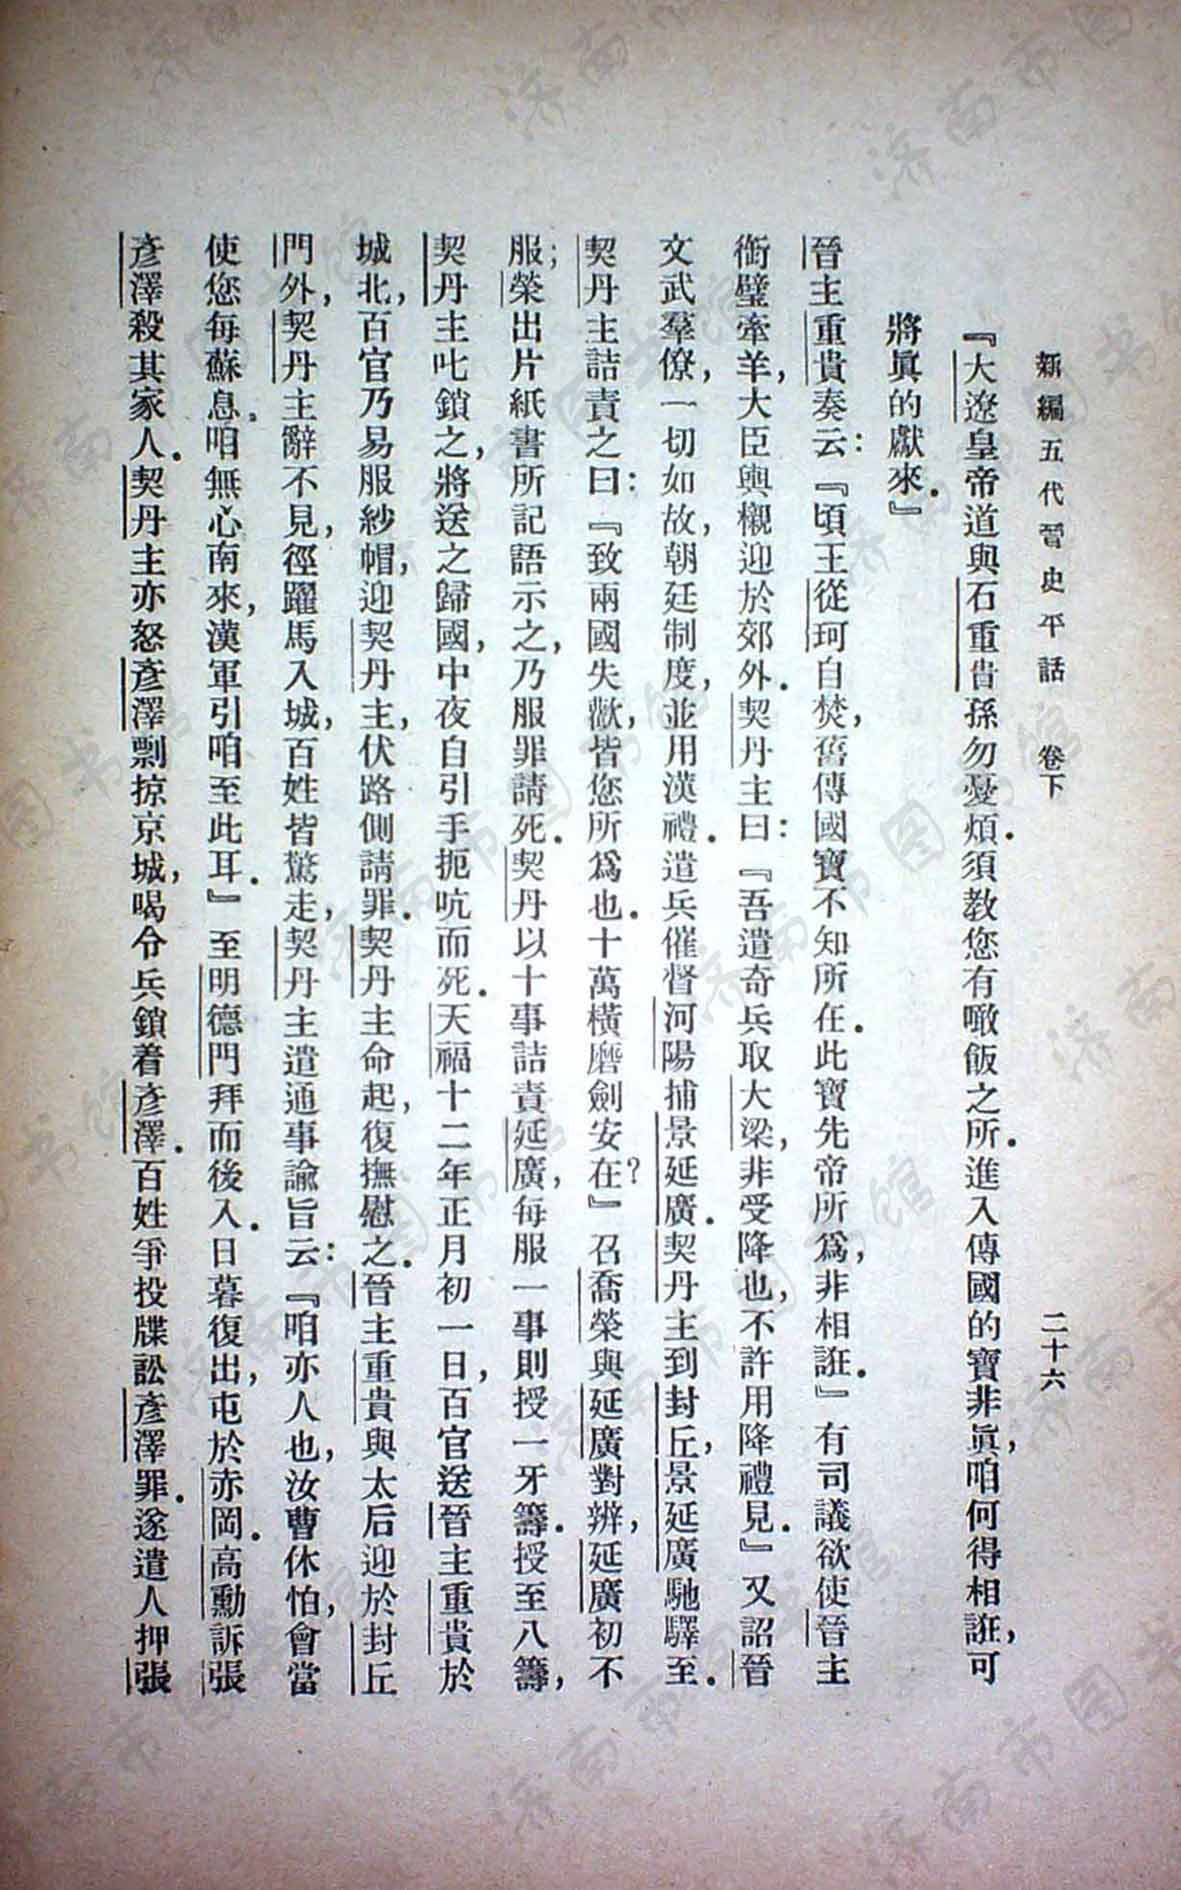 新編五代晉史平話　卷下　二十六
『大遼皇帝道與石重貴孫勿憂煩．須教您有噉飯之所．進入傳國的寶非眞，咱何得相誑，可
將眞的獻來．』
晉主重貴奏云：『頃王從珂自焚，舊傳國寶不知所在．此寶先帝所爲，非相誑．』有司議欲使晉主
銜璧牽羊，大臣輿櫬迎於郊外．契丹主曰：『吾遣奇兵取大梁，非受降也，不許用降禮見．』又詔晉
文武羣僚，一切如故，朝廷制度，並用漢禮．遣兵催督河陽捕景延廣．契丹主到封丘，景延廣馳驛至．
契丹主詰責之曰：『致兩國失歡，皆您所爲也．十萬橫磨劍安在？』召喬榮與延廣對辨，延廣初不
服；榮出片紙書所記語示之，乃服罪請死．契丹以十事詰責延廣，每服一事則授一牙籌．授至八籌，
契丹主叱鎖之，將送之歸國，中夜自引手扼吭而死．天福十二年正月初一日，百官送晉主重貴於
城北，百官乃易服紗帽，迎契丹主，伏路側請罪．契丹主命起，復撫慰之．晉主重貴與太后迎於封丘
門外，契丹主辭不見，徑躍馬入城，百姓皆驚走，契丹主遣通事諭旨云：『咱亦人也，汝曹休怕，會當
使您每蘇息．咱無心南來，漢軍引咱至此耳．』至明德門拜而後入．日暮復出，屯於赤岡．高勳訴張
彥澤殺其家人．契丹主亦怒彥澤剽掠京城，喝令兵鎖着彥澤．百姓爭投牒訟彥澤罪．遂遣人押張